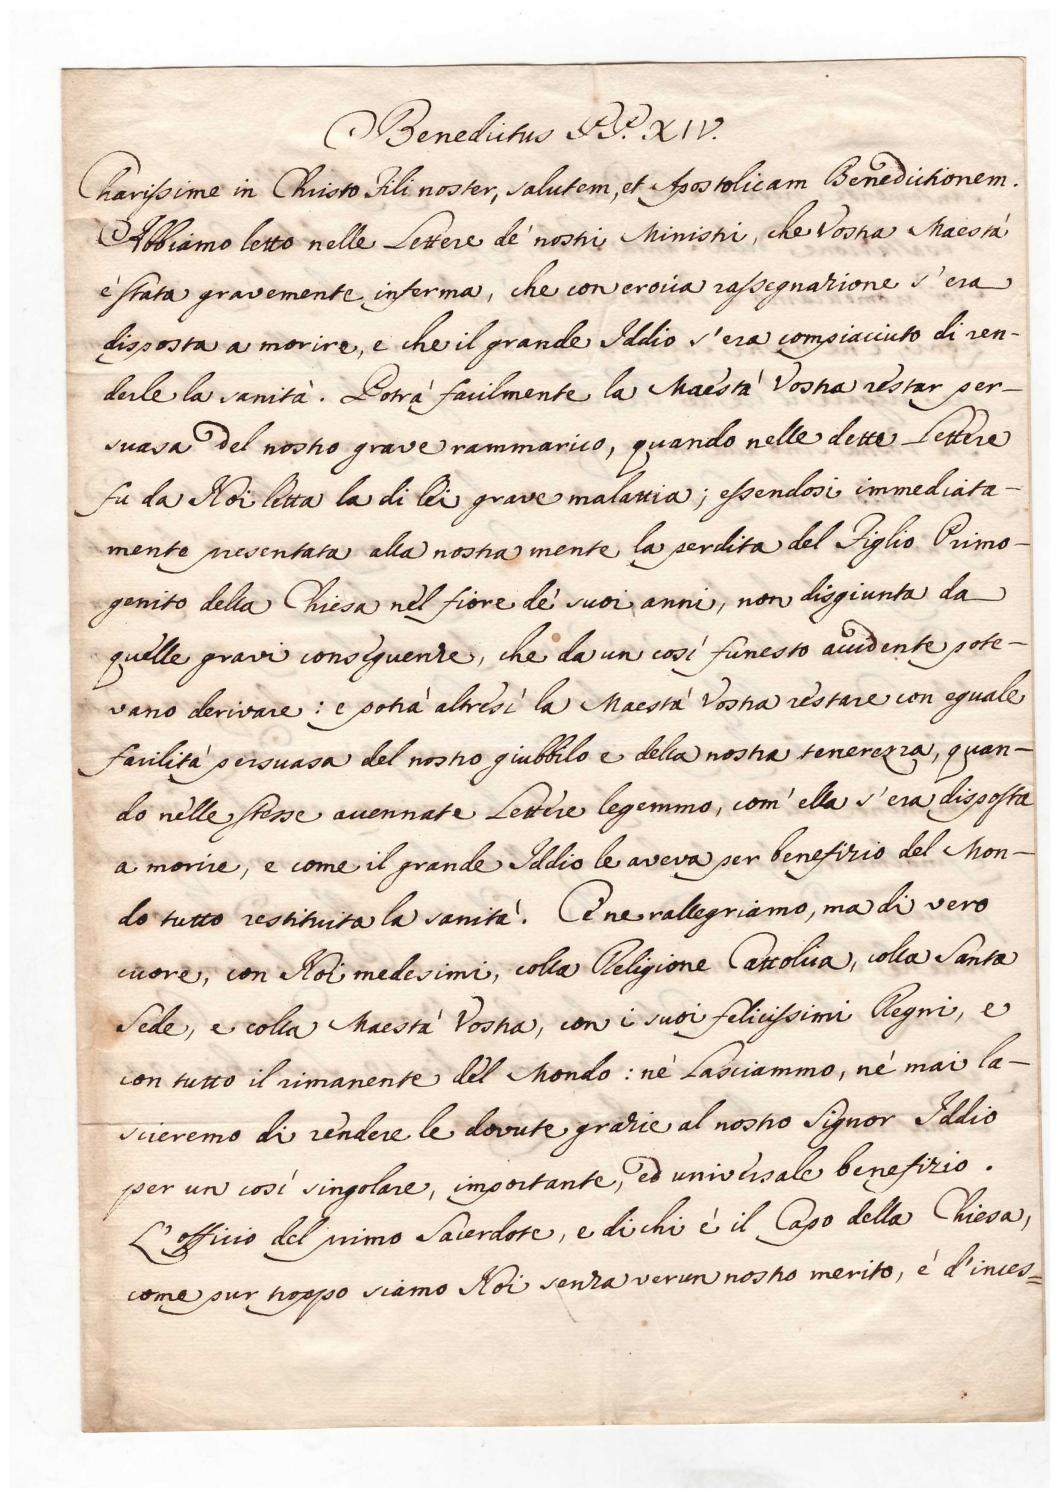 Benedictus P.P. XIV.
Charissime in Christo Fili noster, salutem, et Apostolicam Benedictionem.
Abbiamo letto nelle Lettere de' nostri Ministri, che Vostra Maestà
è stata gravemente inferma, che con eroica rassegnazione s'era
disposta a morire, e che il grande Iddio s'era compiacciuto di ren-
derle la sanità. Potrà facilmente la Maestà Vostra restar per-
suasa del nostro grave rammarico, quando nelle dette Lettere
fu da Noi letta la di lei grave malattia; essendosi immediata-
mente presentata alla nostra mente la perdita del Figlio Primo-
genito della Chiesa nel fiore de' suoi anni, non disgiunta da
quelle gravi conseguenze, che da un così funesto accidente pote-
vano derivare: e potrà altresì la Maestà Vostra restare con eguale
facilità persuasa del nostro giubbilo e della nostra tenerezza, quan-
do nelle stesse accennate Lettere legemmo, com' ella s'era disposta
a morire, e come il grande Iddio le aveva per benefizio del Mon-
do tutto restituita la sanità. Ce ne rallegriamo, ma di vero
cuore, con Noi medesimi, colla Religione Cattolica, colla Santa
Sede, e colla Maestà Vostra, con i suoi felicissimi Regni, e
con tutto il rimanente del Mondo: nè Lasciammo, nè mai la-
scieremo di rendere le dovute grazie al nostro Signor Iddio
per un così singolare, importante, ed universale benefizio.
L'officio del primo Sacerdote, e di chi è il Capo della Chiesa,
come pur troppo siamo Noi senza verun nostro merito, è d'inces=